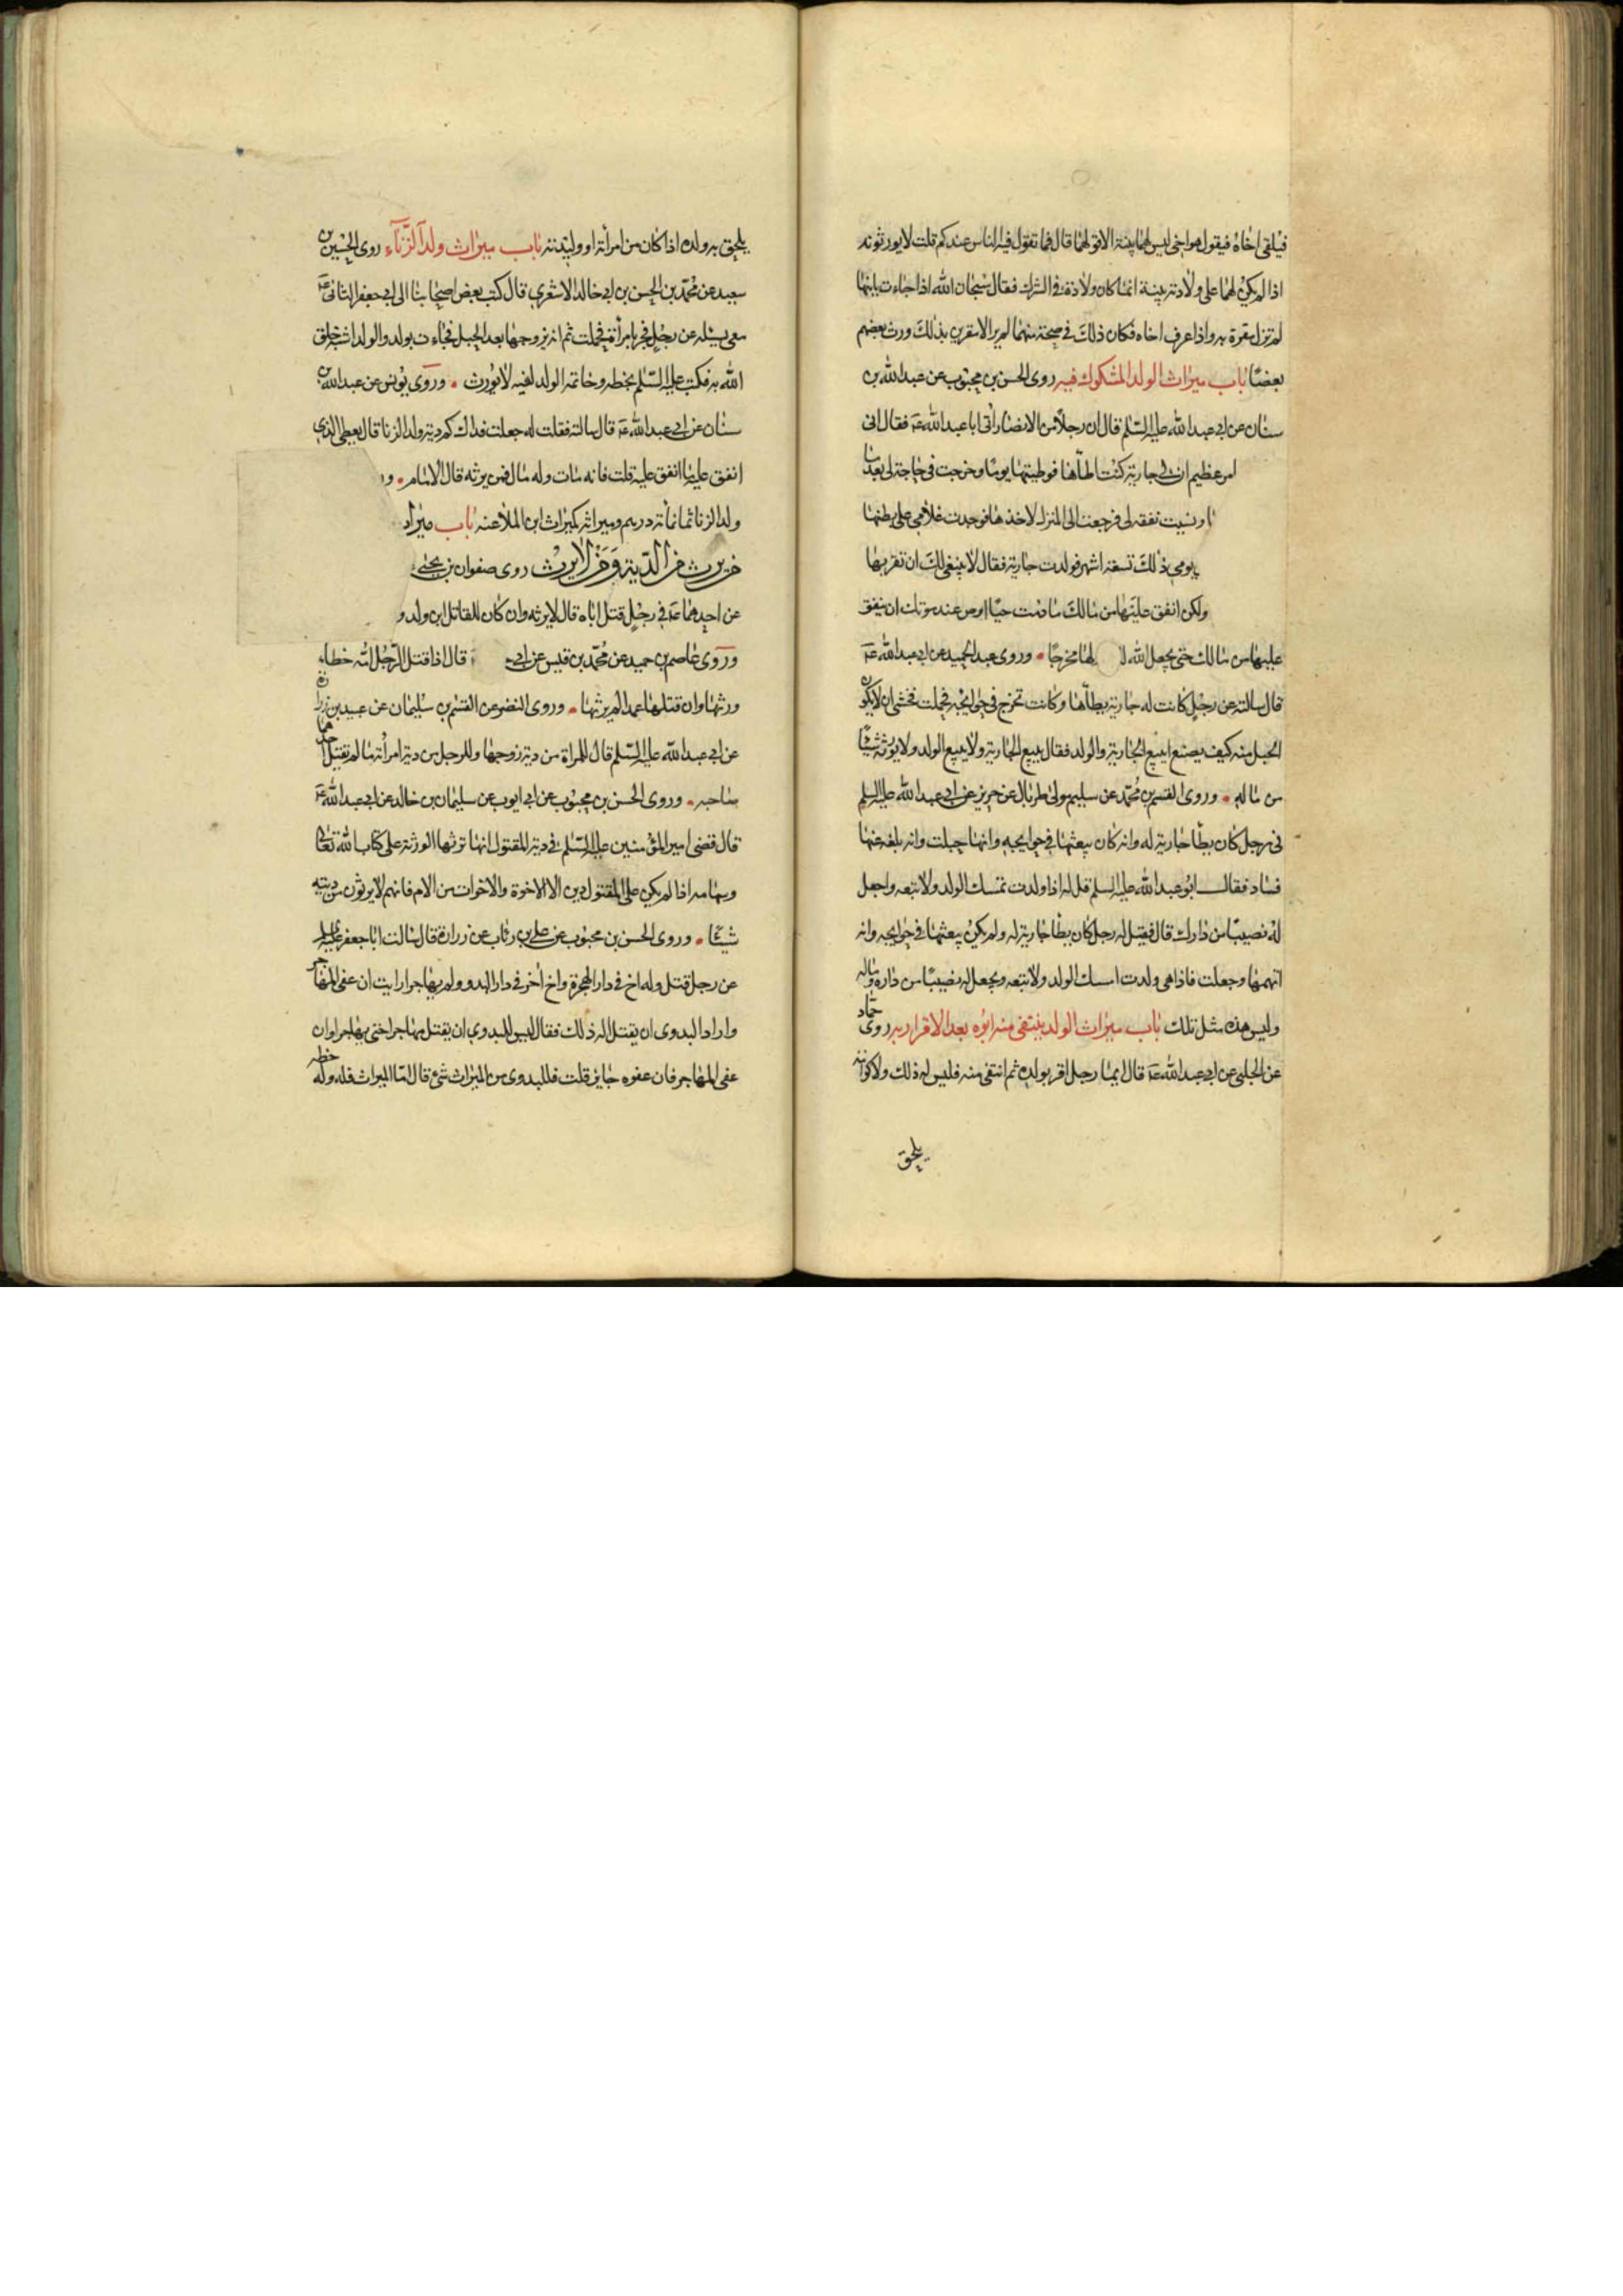 فيلقى اخاه فيقول هو اخى ليس لهما بينة الا قولهما قال فما تقول فيه الناس عندكم قلت لا يورثونه
اذا لم يكن لهما على ولادته بينة انما كان ولادة فى الشرك فقال سبحان الله اذا جاءت بابنها
لم تزل مقرة به واذا عرف اخاه فكان ذلك فى صحة منهما لم يزالا مقرين بذلك ورث بعضهم
بعضا باب ميراث الولد المشكوك فيه روى الحسن بن محبوب عن عبد الله بن
سنان عن ابى عبد الله عليه السلم قال ان رجلا من الانصار اتى ابا عبد الله عه فقال انى
امر عظيم ان لى جارية كنت اطأها فوطيتها يوما وخرجت فى حاجة لى بعد ما
ونسيت نفقه لى فرجعت الى المنزل لاخذها فوجدت غلامى على بطنها
يومى ذلك تسعة اشهر فولدت جارية فقال لا ينبغى لك ان تقربها
ولكن انفق عليها من مالك ما دمت حيا اوص عند موتك ان ينفق
عليها من مالك حتى يجعل الله لها مخرجا وروى عبد الحميد عن ابى عبد الله عه
قال سالته عن رجل كانت له جارية يطأها وكانت تخرج فى حوايجه فحملت فخشى ان لا يكون
الحبل منه كيف يصنع ايبيع الجارية والولد فقال يبيع الجارية ولا يبيع الولد ولا يورثه شيئا
من ماله وروى القسم بن محمد عن سليم مولى طربال عن حريز عن ابى عبد الله عليه السلم
فى رجل كان يطأ جارية له وانه كان يبعثها فى حوايجه وانها حبلت وانه بلغه عنها
فساد فقال ابو عبد الله عليه السلم قل له اذا ولدت تمسك الولد ولا تبعه واجعل
له نصيبا من دارك قال فقيل له رجل كان يطأ جارية له ولم يكن يبعثها فى حوايجه وانه
اتهمها وجعلت فاذا هى ولدت امسك الولد ولا تبعه ويجعل له نصيبا من داره وماله
وليس هذه مثل تلك باب ميراث الولد ينتفى منه ابوه بعد الاقرار به روى حماد
عن الحلبى عن ابى عبد الله عه قال ايما رجل اقر بولده ثم انتفى منه فليس له ذلك ولا كرامة
يلحق
يلحق به ولده اذا كان من امرأته او وليدته باب ميراث ولد الزناء روى الحسين بن
سعيد عن محمد بن الحسن بن ابى خالد الاشعرى قال كتب بعض اصحابنا الى ابى جعفر الثانى عه
معى يسئله عن رجل فجر بامرأة فحملت ثم انه تزوجها بعد الحمل فجاءت بولد والولد اشبه خلق
الله به فكتب عليه السلم بخطه وخاتمه الولد لغيه لا يورث وروى يونس عن عبد الله بن
سنان عن ابى عبد الله عه قال سالته فقلت له جعلت فداك كم دية ولد الزنا قال يعطى الذى
انفق عليه ما انفق عليه قلت فانه مات وله مال فمن يرثه قال الامام
ولد الزنا ثمانمأة درهم وميراثه كميراث ابن الملاعنه باب ميرا
من يرث من الدية ومن لا يرث روى صفوان بن يحيى
عن احدهما عه فى رجل قتل اباه قال لا يرثه وان كان للقاتل ابن ولد و
وروى عاصم بن حميد عن محمد بن قيس عن ابى قال اذا قتل الرجل امه خطاء
ورثها وان قتلها عمدا لم يرثها وروى النضر عن القسم بن سليمان عن عبيد بن زرارة
عن ابى عبد الله عليه السلم قال للمراة من دية زوجها وللرجل من دية امرأته ما لم تقتل احدهما
صاحبه وروى الحسن بن محبوب عن ابى ايوب عن سليمان بن خالد عن ابى عبد الله عه
قال قضى امير المؤمنين عليه السلم فى دية المقتول انها ترثها الورثة على كتاب الله تعالى
وسهامه اذا لم يكن على المقتول دين الا الاخوة والاخوات من الام فانهم لا يرثون من ديته
شيئا وروى الحسن بن محبوب عن على بن رئاب عن زرارة قال سالت ابا جعفر عليه السلم
عن رجل قتل وله اخ فى دار الهجرة واخ اخر فى دار البدو ولم يهاجر ارايت ان عفى المهاجر
واراد البدوى ان يقتل اله ذلك فقال ليس للبدوى ان يقتل مهاجرا حتى يهاجر وان
عفى المهاجر فان عفوه جايز قلت فللبدوى من الميراث شئ قال اما الميراث فله وله حظه